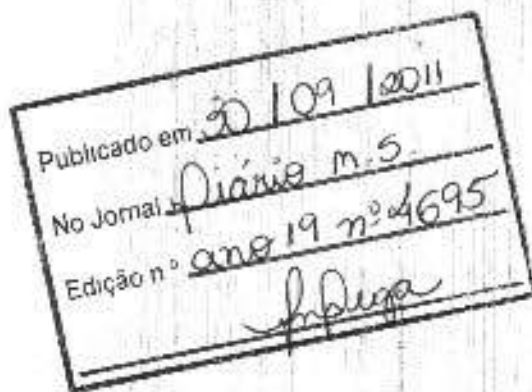 Publicado em 30 / 09 / 2011
No Jornal Diário m.s.
Edição nº ano 19 nº 4695